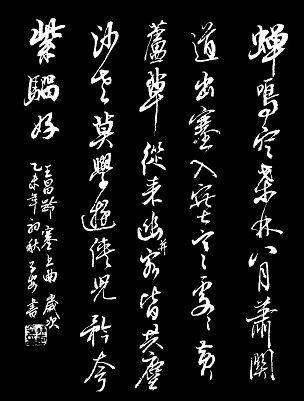 蟬鳴空桑林八月蕭關
道出塞入塞寒處々黃
蘆草從來幽并客皆共塵
沙老莫學遊俠兒矜夸
紫騮好
王昌齡塞上曲歲次
乙未年初秋書